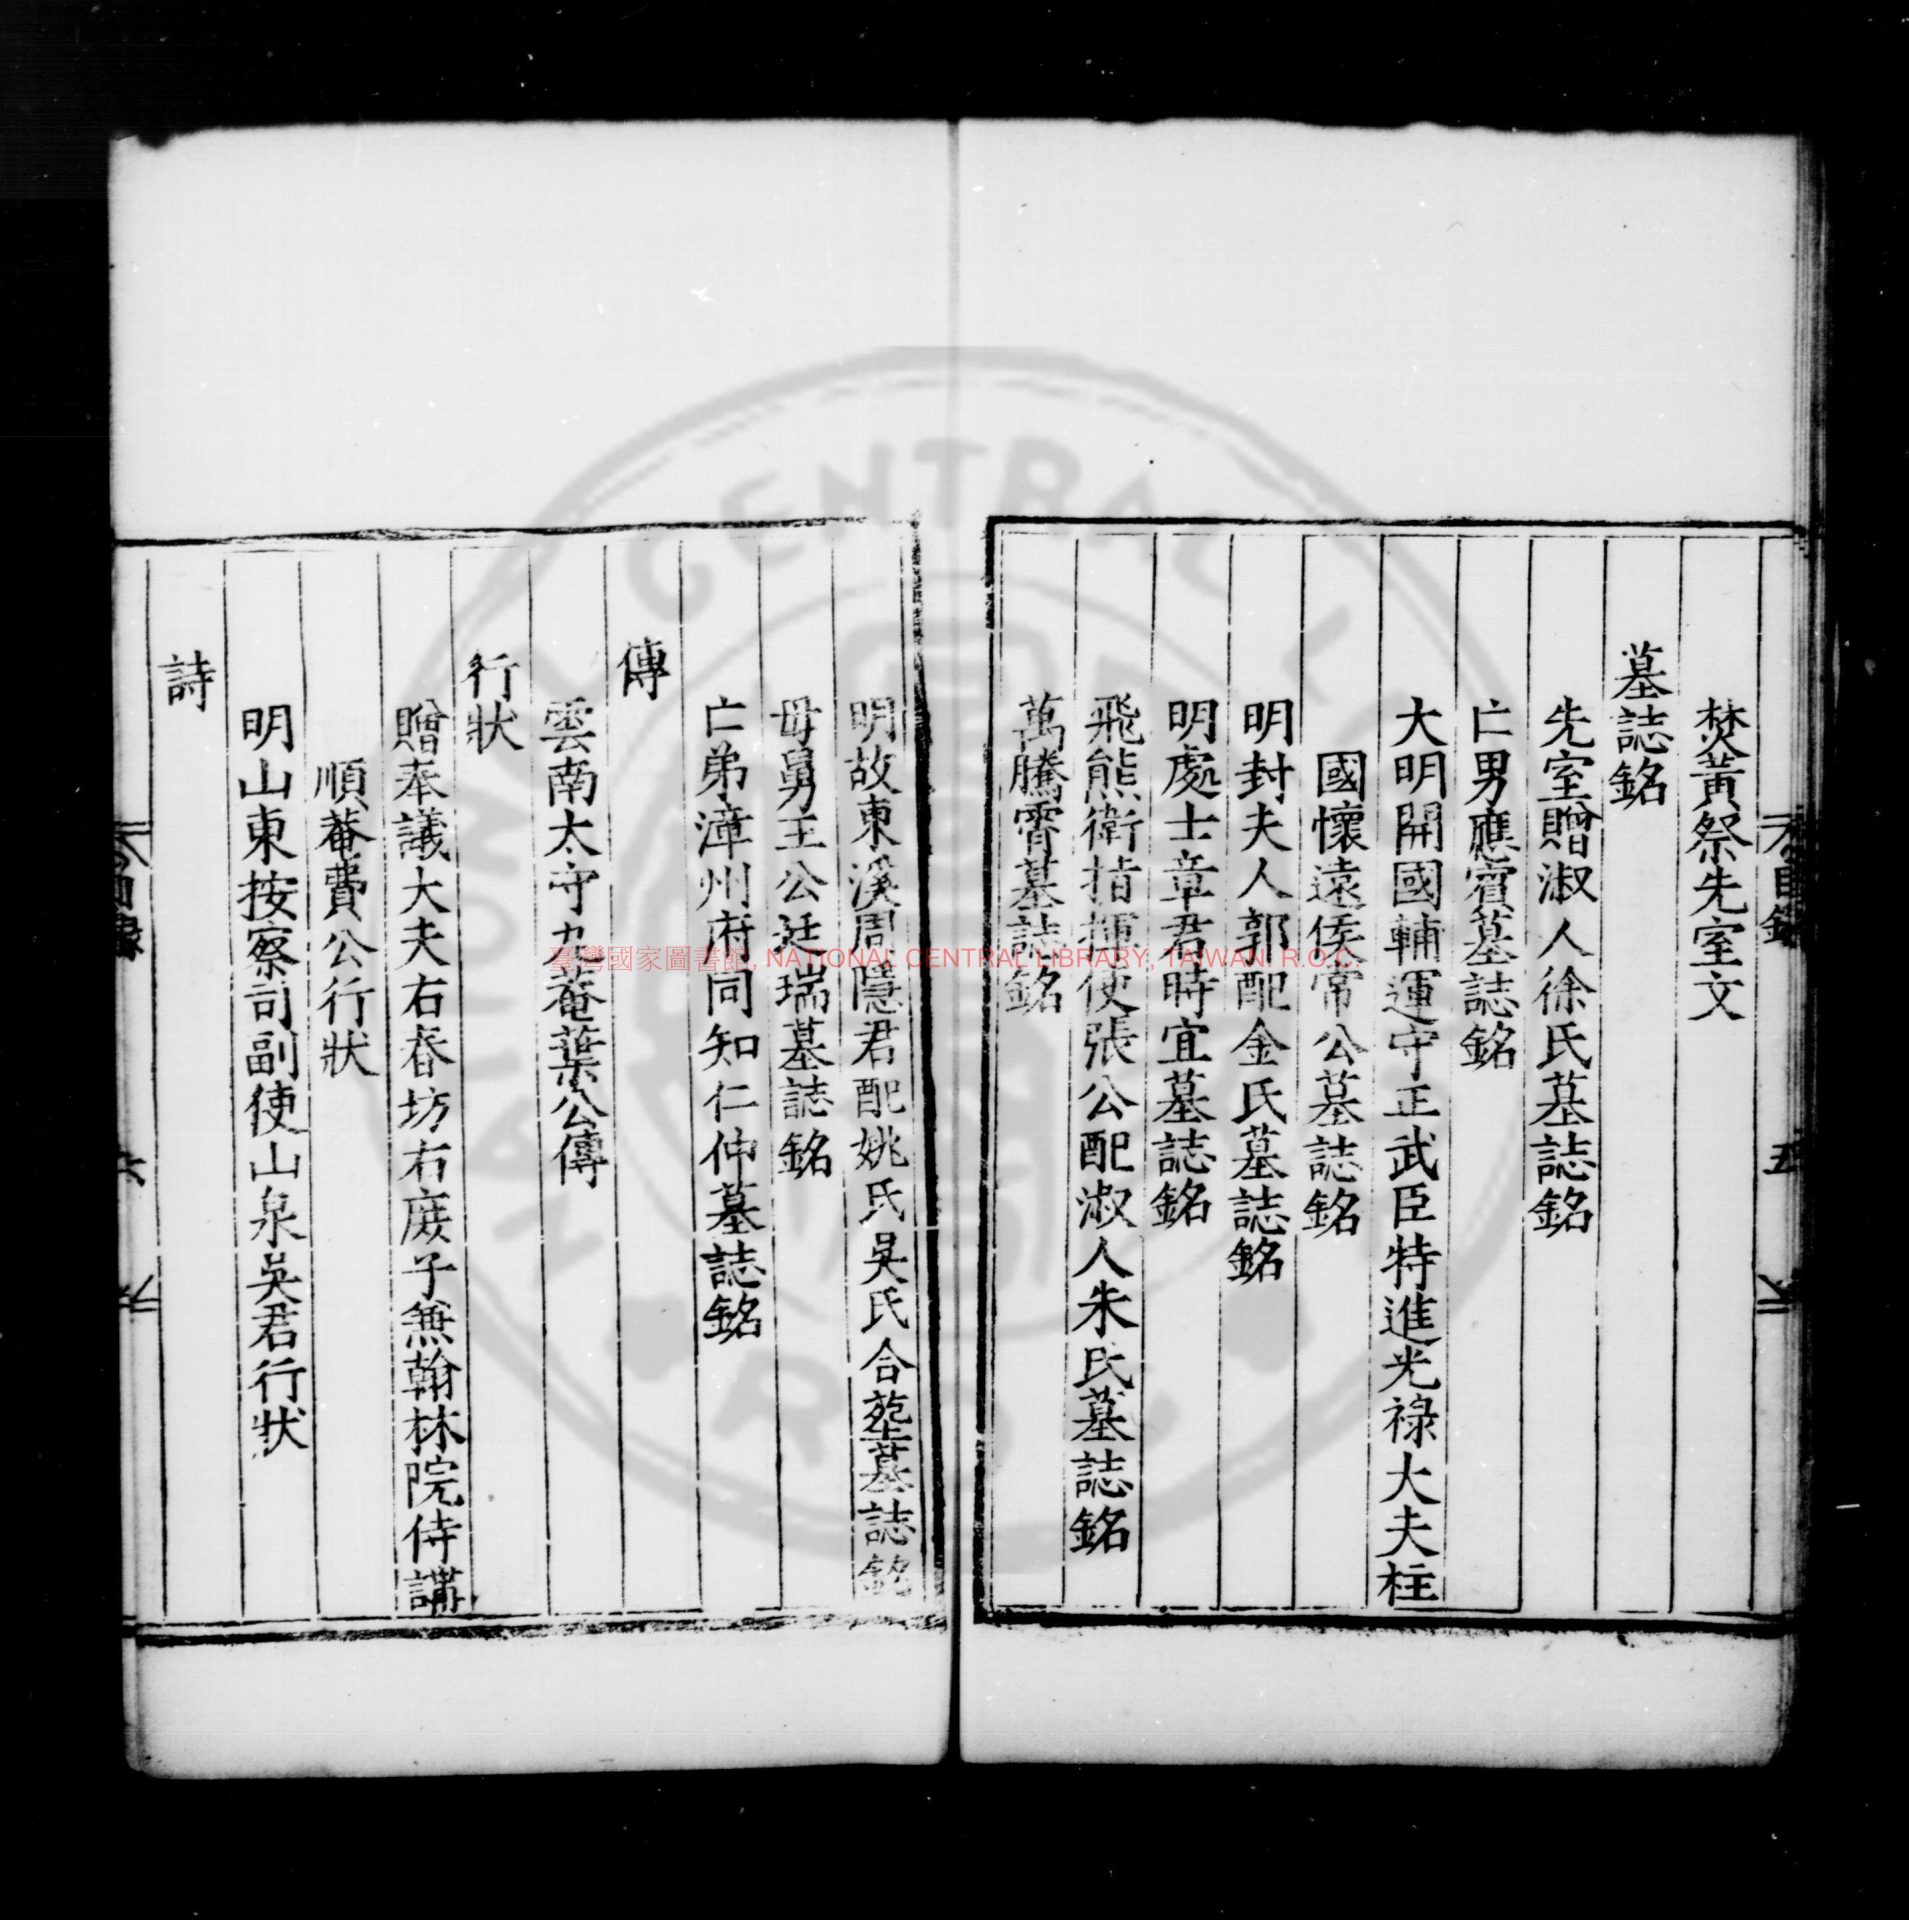 焚黃祭先室文
墓誌銘
先室贈淑人徐氏墓誌銘
亡男應賓墓誌銘
大明開國輔運守正武臣特進光祿大夫柱
國懷遠侯常公墓誌銘
明封夫人郭配金氏墓誌銘
明處士章君時宜墓誌銘
飛熊衛指揮使張公配淑人朱氏墓誌銘
萬騰霄墓誌銘
五
明故東溪周隱君配姚氏吳氏合塟墓誌銘
母舅王公廷瑞墓誌銘
亡弟漳州府同知仁仲墓誌銘
傳
雲南太守九菴葉公傳
行狀
贈奉議大夫右春坊右庻子兼翰林院侍講
順菴費公行狀
明山東按察司副使山泉吳君行狀
詩
臺灣國家圖書館, NATIONAL CENTRAL LIBRARY, TAIWAN. R.O.C.